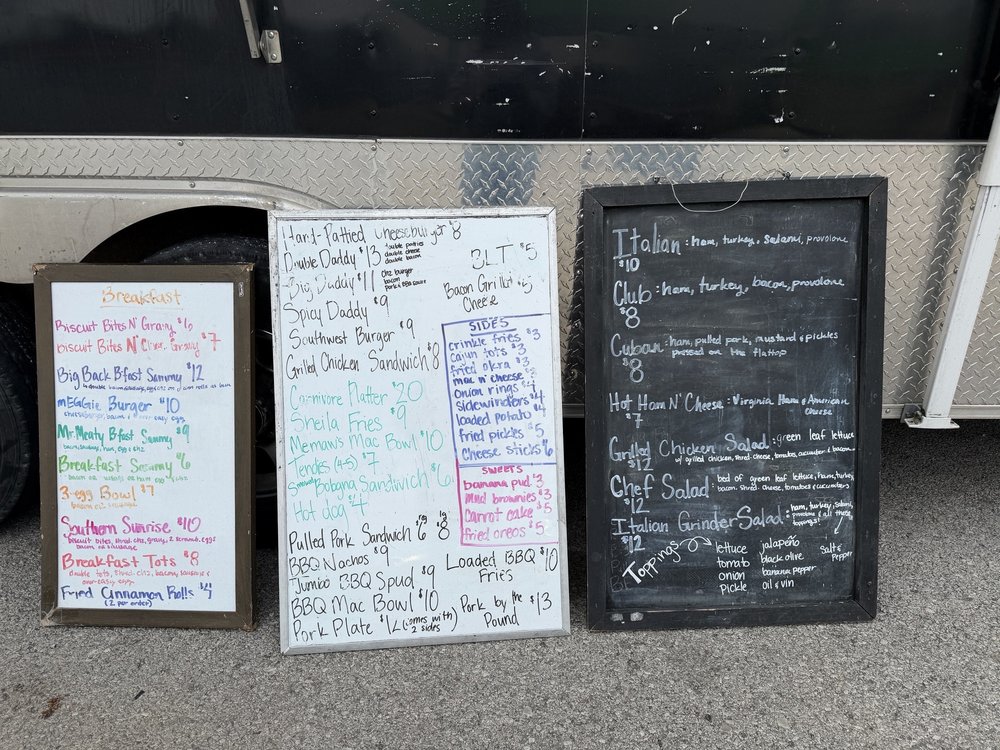 Breakfast
Biscuit Bites N' Gravy $6
Biscuit Bites N' Gravy $7
Big Back Bfast Sammy $12
MEGGie Burger $10
cheeseburger, bacon, over easy egg
Mr. Meaty Bfast Sammy $9
Breakfast Sammy $6
3-egg Bowl $7
Southern Sunrise $10
biscuit bites, shred chz, gravy, 2 scrambld eggs
bacon or sausage
Breakfast Tots $8
double tots, shred chz, bacon, sausage &
over easy egg
Fried Cinnamon Rolls $4
(2 per order)
Hand-Pattied Cheeseburger $8
Double Daddy $13 double patties
double cheese
double bacon
Big Daddy $11 chz burger
bacon
pork & BBQ sauce
Spicy Daddy $9
Southwest Burger $9
Grilled Chicken Sandwich $8
Carnivore Platter $20
Sheila Fries $9
Memaws Mac Bowl $10
Tendies (4-5) $7
Smoked Bologna Sandwich $6
Hot dog $4
Pulled Pork Sandwich $6 lg $8
BBQ Nachos $9
Jumbo BBQ Spud $9
BBQ Mac Bowl $10
Pork Plate $12 (comes with
2 sides)
BLT $5
Bacon Grilled $5
Cheese
SIDES
crinkle fries $3
cajun tots $3
fried okra $3
mac n' cheese $3
onion rings $4
sidewinders $4
loaded potato $4
fried pickles $5
Cheese sticks $6
SWEETS
banana pud. $3
mud brownies $3
carrot cake $5
fried oreos $5
Loaded BBQ $10
Fries
Pork by the $13
Pound
Italian: ham, turkey, salami, provolone
$10
Club: ham, turkey, bacon, provolone
$8
Cuban: ham, pulled pork, mustard & pickles
pressed on the flattop
$8
Hot Ham N' Cheese: Virginia Ham & American
Cheese
$7
Grilled Chicken Salad: green leaf lettuce
w/ grilled chicken, shred cheese, tomatoes, cucumber & bacon
$12
Chef Salad: bed of green leaf lettuce, ham, turkey,
bacon, shred cheese, tomatoes & cucumbers
$12
Italian Grinder Salad: ham, turkey, salami,
provolone & all these
toppings!
$12
Toppings
lettuce
tomato
onion
pickle
jalapeño
black olive
banana pepper
oil & vin
salt &
pepper